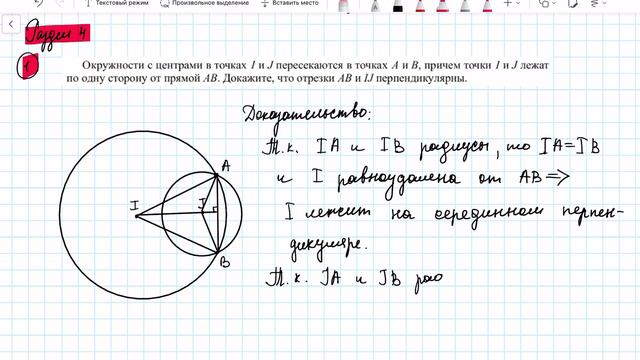 Текстовый режим Произвольное выделение Вставить место
Раздел 4
1
Окружности с центрами в точках I и J пересекаются в точках A и B, причем точки I и J лежат
по одну сторону от прямой AB. Докажите, что отрезки AB и IJ перпендикулярны.
Доказательство:
Т.к. IA и IB радиусы, то IA=IB
и I равноудалена от AB ⇒
I лежит на серединном перпен-
дикуляре.
Т.к. JA и JB рас
A
I
J
B